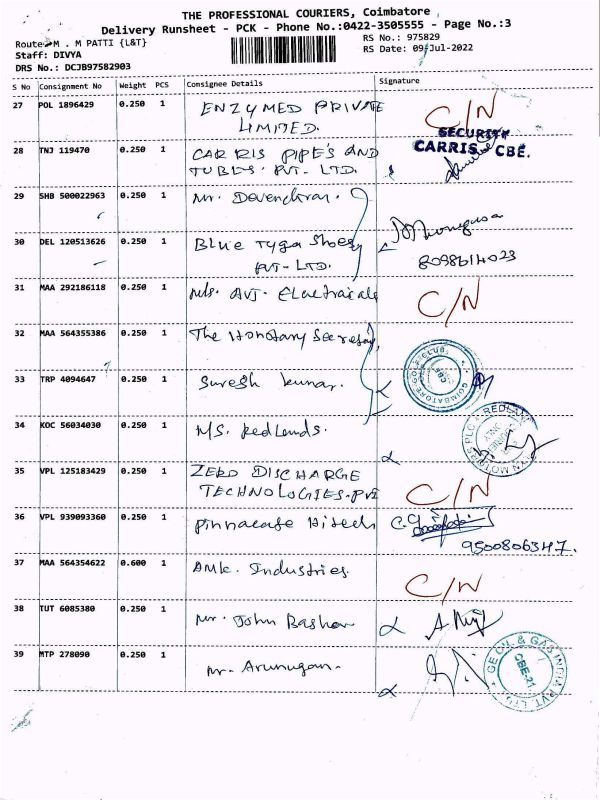 THE PROFESSIONAL COURIERS, Coimbatore
Delivery Runsheet - PCK - Phone No.:0422-3505555 - Page No.:3
Route: M . M PATTI {L&T}
RS No.: 975829
Staff: DIVYA
RS Date: 09-Jul-2022
DRS No.: DCJB97582903
S No Consignment No Weight PCS Consignee Details Signature
27 POL 1896429 0.250 1 ENZYMED PRIVATE LIMITED. C/N
28 TNJ 119470 0.250 1 CARRIS PIPE'S AND TUBES. PVT. LTD.
SECURITY
CARRIS CBE.
29 SHB 500022963 0.250 1 Mr. Devendran.
30 DEL 120513626 0.250 1 BLUE Tyga Shoes PVT- LTD.
8098614023
31 MAA 292186118 0.250 1 M/s. AVJ. Electricals C/N
32 MAA 564355386 0.250 1 The Honotary Secretary,
33 TRP 4094647 0.250 1 Suresh kumar.
COIMBATORE GOLF CLUB
CBE
34 KOC 56034030 0.250 1 M/S. Redlands.
35 VPL 125183429 0.250 1 ZERO DISCHARGE TECHNOLOGIES. PVT C/N
36 VPL 939093360 0.250 1 pinnacase Hitech
9500806347.
37 MAA 564354622 0.600 1 AMK. Industries. C/N
38 TUT 6085380 0.250 1 Mr. John Bashar
39 MTP 278090 0.250 1 Mr. Arunugan.
GE OIL & GAS INDIA PVT. LTD.
CBE-21